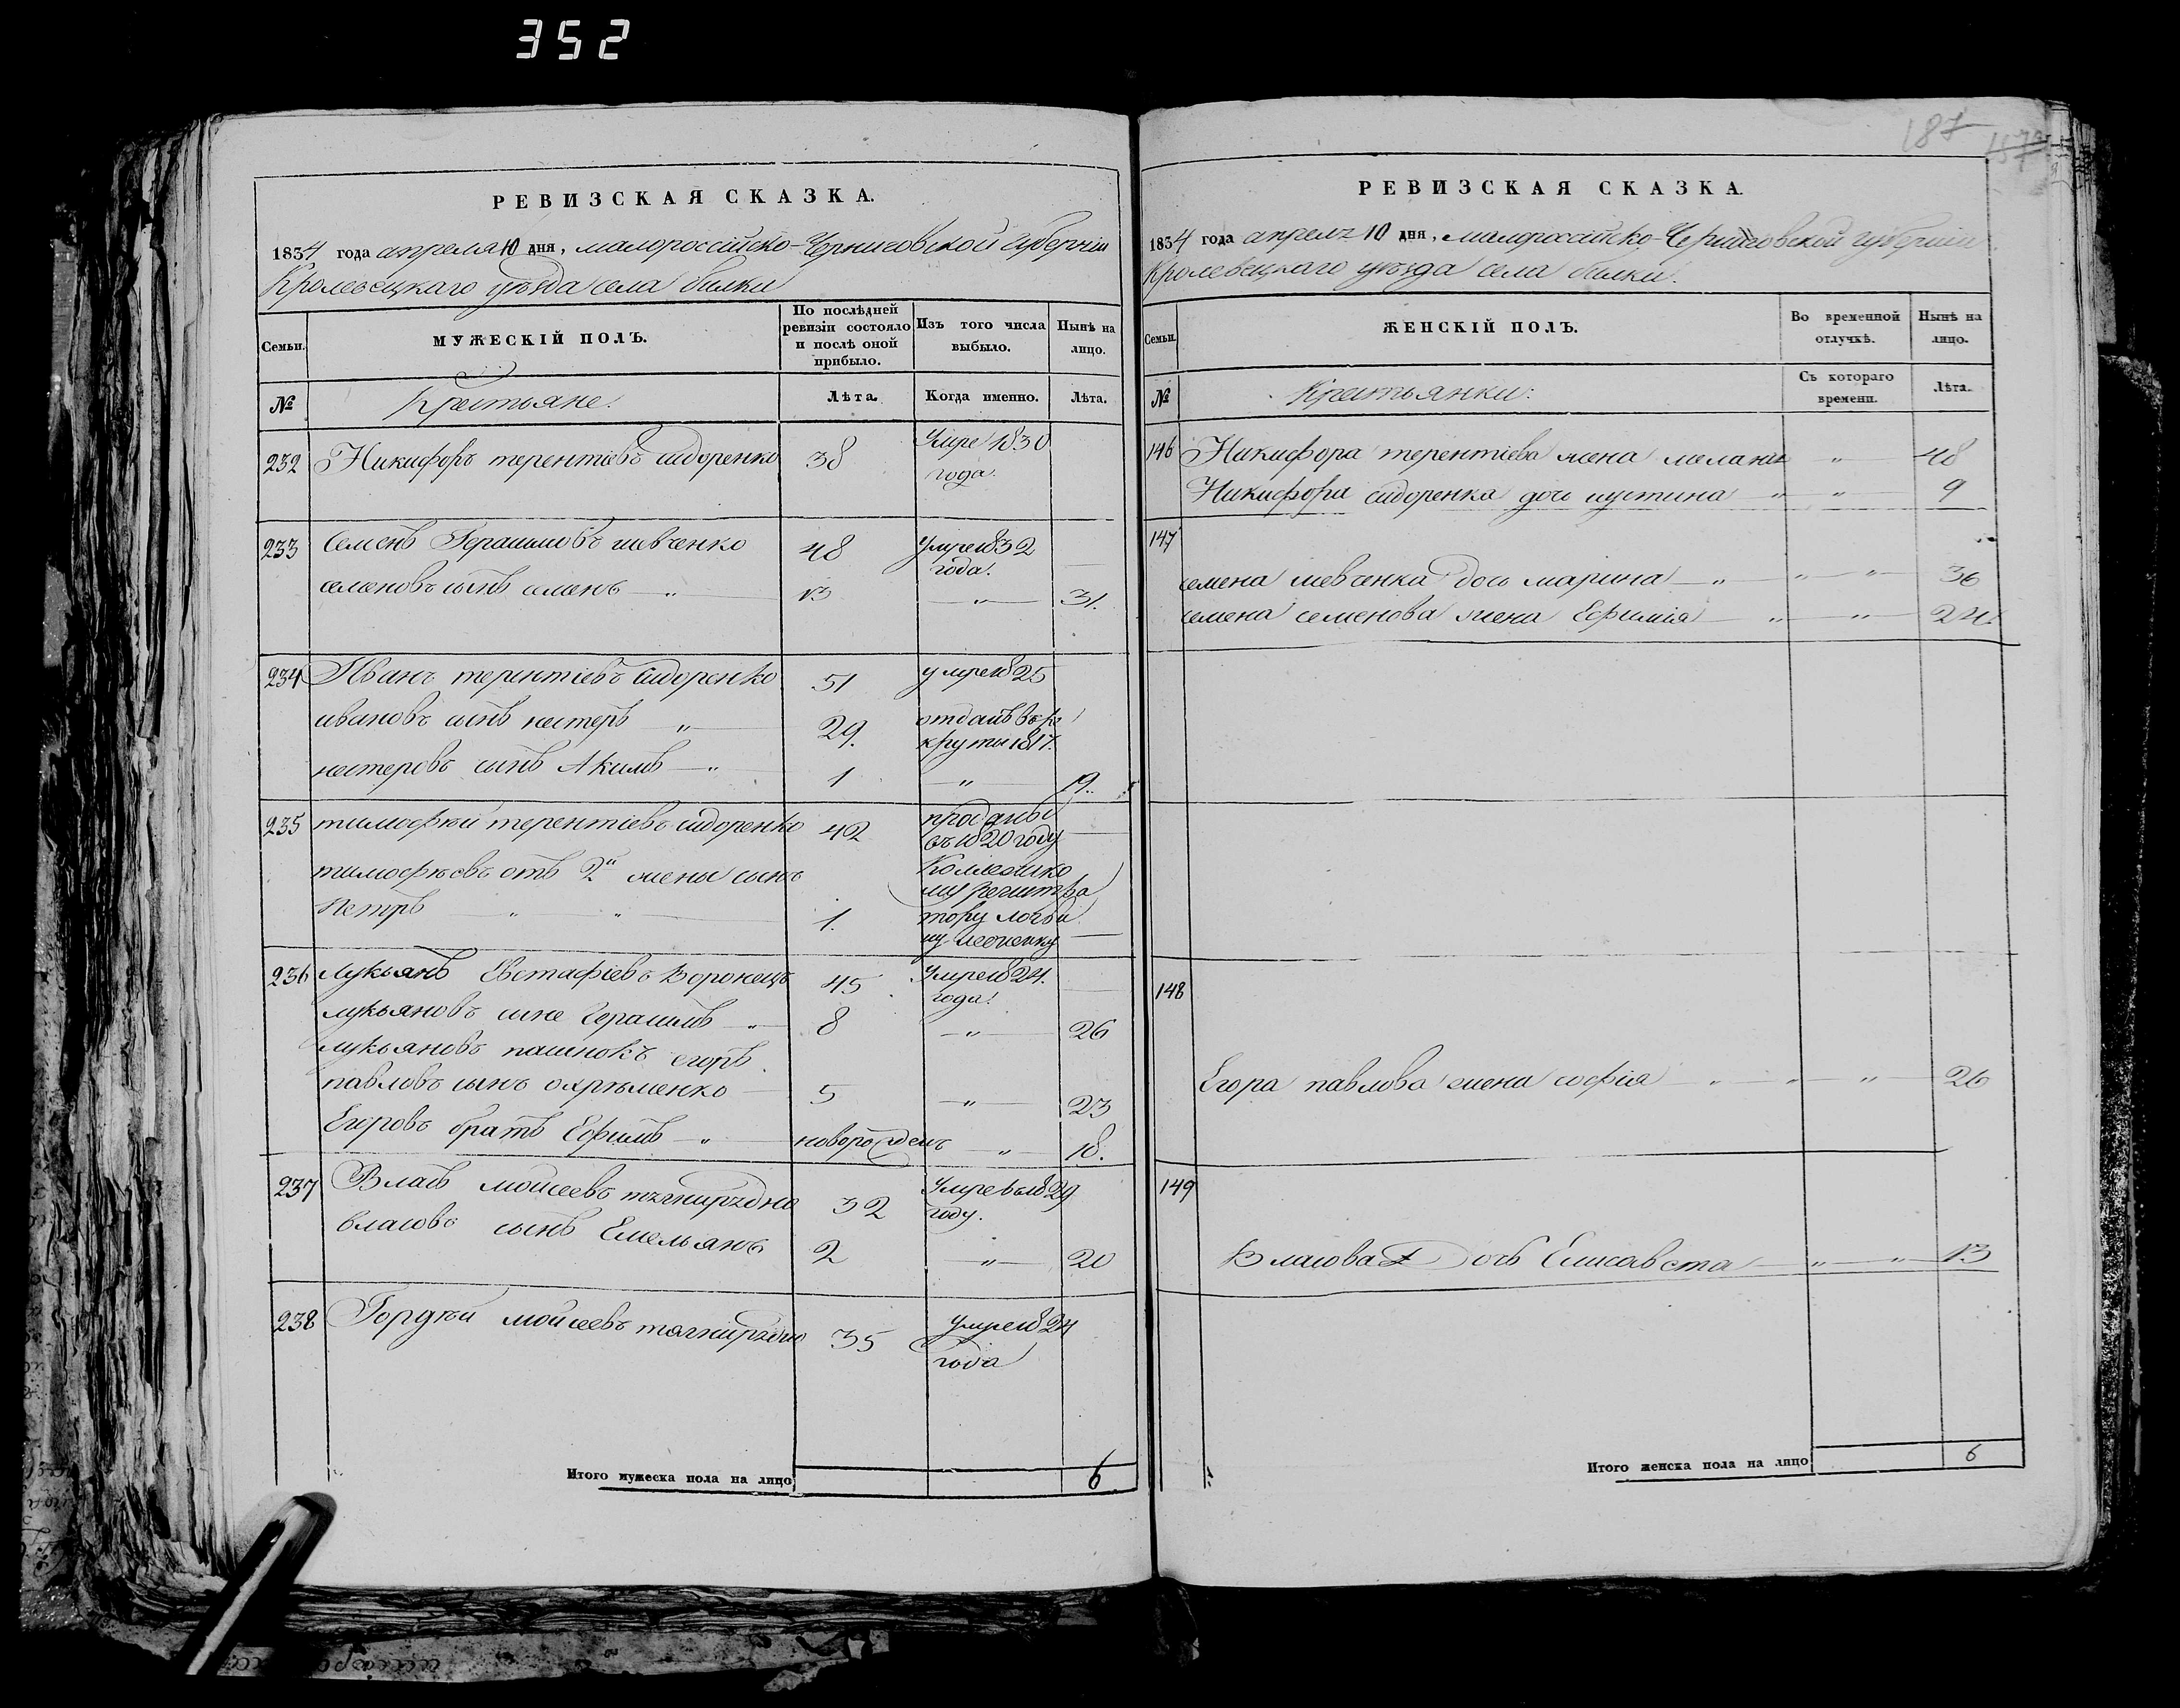 352
РЕВИЗСКАЯ СКАЗКА.
1834 года апреля 10 дня, малороссійско-Черниговской Губерніи
Кролевецкаго уѣзда села билки
Семьи.
МУЖЕСКІЙ ПОЛЪ.
По послѣдней ревизіи состояло и послѣ оной прибыло.
Изъ того числа выбыло.
Нынѣ на лицо.
№
Крестьяне.
Лѣта.
Когда именно.
Лѣта.
232 Никифоръ терентіевъ сидоренко 38 Умре 1830
года
233 Семенъ Герасимовъ шевченко 48 Умре 1832
года.
семеновъ сынъ семенъ — „ — 13 — „ — 31.
234 Иванъ терентіевъ Сидоренко 51 умре 1825
ивановъ сынъ нестеръ — „ — 29. отданъ въ ре
круты 1817.
нестеровъ сынъ Акимъ — „ — 1 — „ — 19.
235 тимофей терентіевъ сидоренко 42 проданы
въ 1820 году
тимофѣевъ отъ 2й жены сынъ Колежско
му регистра
Петръ — „ — „ — 1. тору
236 Лукьянъ Евстафіевъ Воронецъ 45 Умре 1824.
года.
лукьяновъ сынъ Герасимъ — „ 8 — „ — 26
лукьяновъ пасинокъ егоръ
павловъ сынъ охрѣменко — 5 — „ — 23
Егоровъ братъ Ефимъ — „ — новорожденъ — „ — 18.
237 Власъ мойсеевъ 32 Умре въ 1829
году.
власовъ сынъ Емельянъ 2 — „ — 20
238 Гордѣй мойсеевъ 35 умре 1824
года
Итого мужеска пола на лицо 6
187
РЕВИЗСКАЯ СКАЗКА.
1834 года апреля 10 дня, малороссійско-Черниговской губерніи
Кролевецкаго уѣзда села билки.
Семьи.
ЖЕНСКІЙ ПОЛЪ.
Во временной отлучкѣ.
Нынѣ на лицо.
№
Крестьянки:
Съ котораго времени.
Лѣта.
146 Никифора терентіева жена меланія — „ — 48
Никифора сидоренка дочь иустина — „ — „ — 9
147
семена шевченка дочь марина — „ — „ — „ — 36
семена семенова жена Ефимія — „ — „ — 24
148
Егора павлова жена софія — „ — „ — „ — 26
149
Власова Дочь Елисавета — „ — „ — 13
Итого женска пола на лицо 6